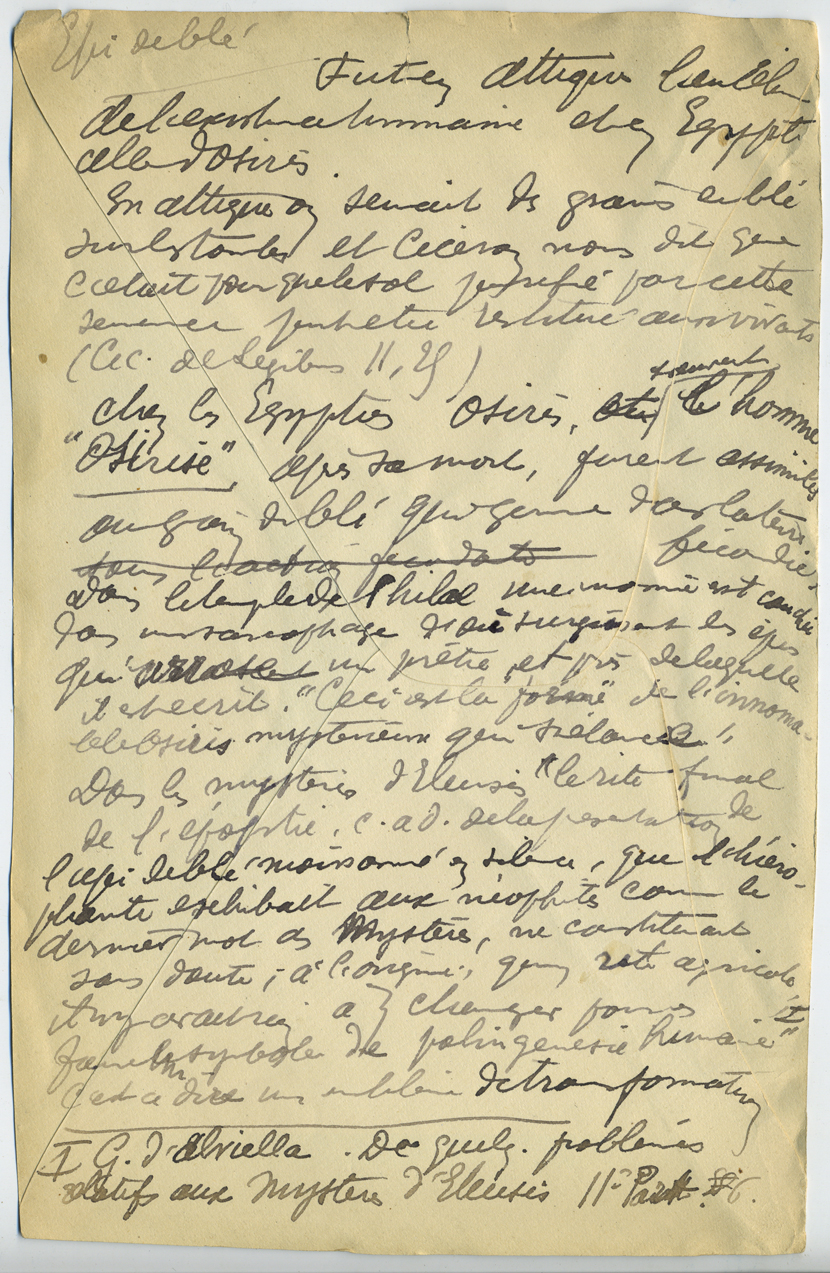 Epi de blé
Fut en Attique l'emblème
de l'existence humaine et en Egypte
celle d'Osiris.
En Attique on semait des grains de blé
sur les tombes et Ciceron nous dit que
c'etait pour que le sol purifié par cette
semence put etre restitué aux vivants
(Cic. de Legibus II, 25)
chez les Egyptiens Osiris, et l'homme
"Osirisé", après sa mort, furent assimilés
au grain de blé qui germe dans la terre
sous l'action fécondante fécondée
Dans le temple de Philae une momie est couchée
dans un sarcophage d'où surgissent les épis
qu'arrose un prêtre, et près de laquelle
il est ecrit: "Ceci est la forme de l'innoma-
ble Osiris mysterieux qui s'élance".
Dans les mysteres d'Eleusis "le rite final
de l'époptie, c. a d. de la presentation de
l'épi de blé moissonné en silence, que l'hiéro-
phante exhibait aux néophites comme le
dernier mot des Mystères, ne constituait
sans doute, à l'origine, qu'un rite agricole
il n'y avait rien a y changer pour I
faire le symbole de palingenesie humaine"
c'est a dire un embleme de transformation
I G. d'Alviella. De quelq. problèmes
relatifs aux Mysteres d'Eleusis IIe Part.